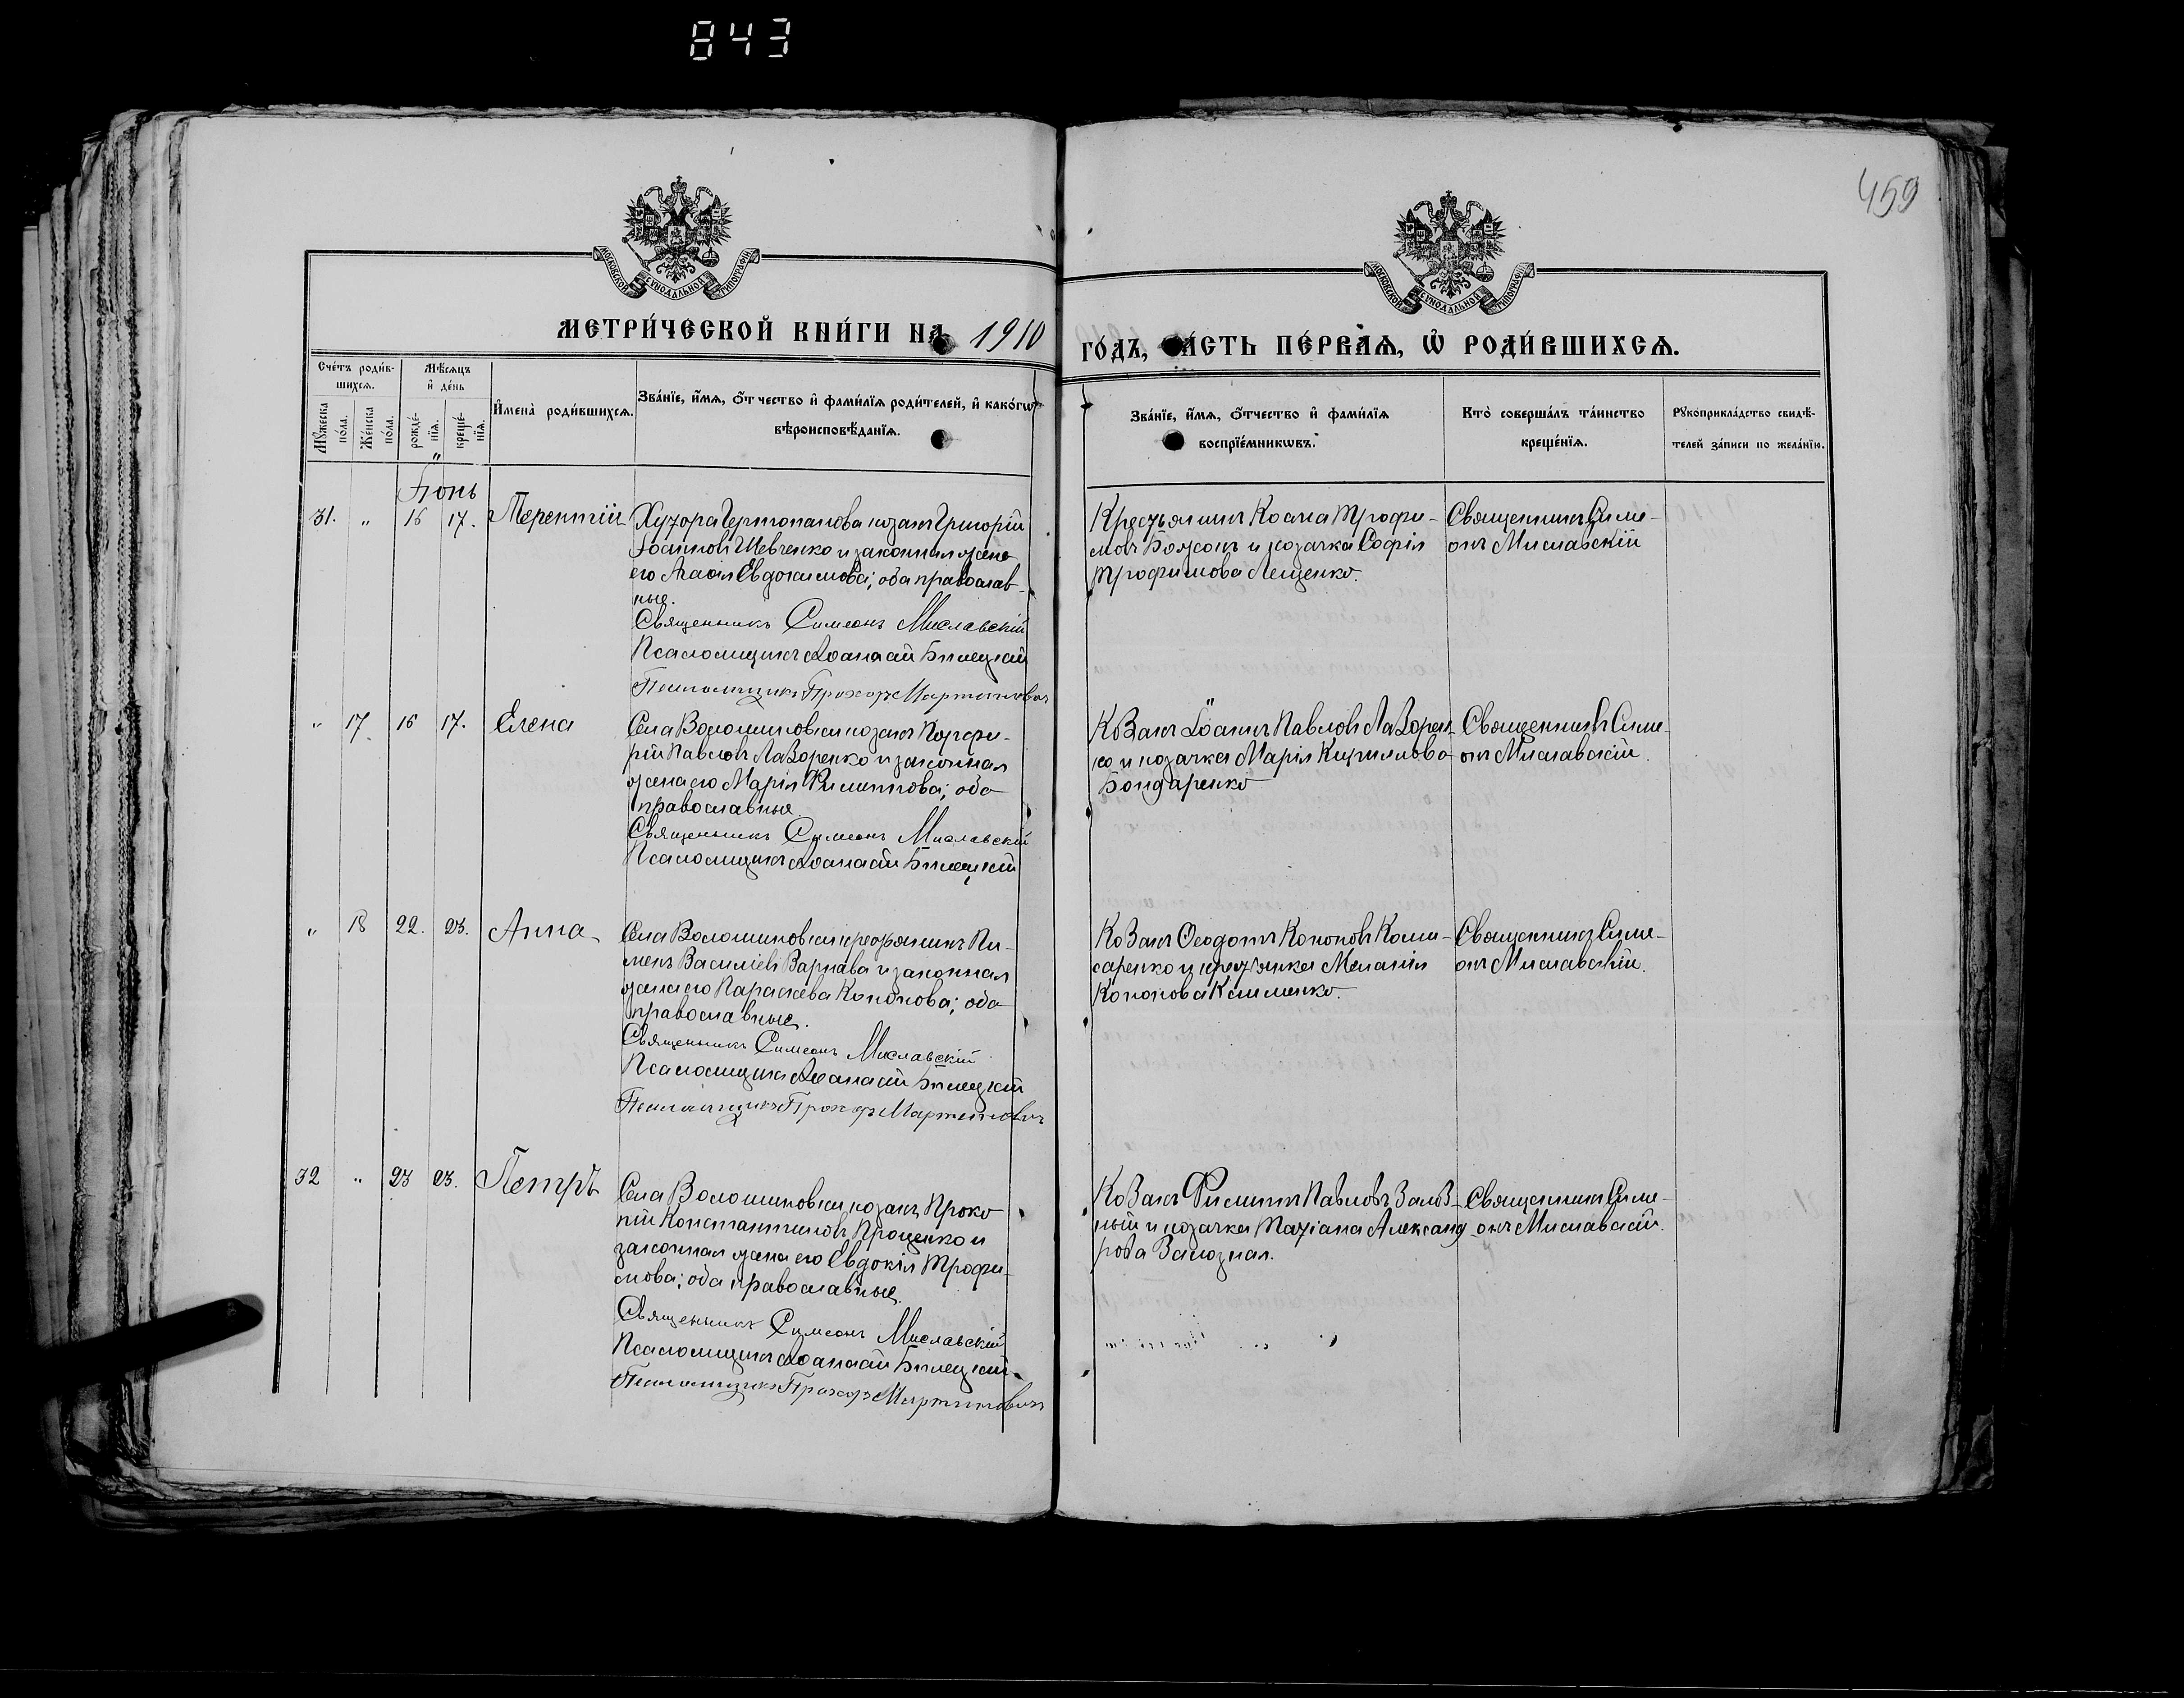 843
459
МОСКОВСКОЙ СѴНОДАЛЬНОЙ ТИПОГРАФІИ
МОСКОВСКОЙ СѴНОДАЛЬНОЙ ТИПОГРАФІИ
МЕТРИ́ЧЕСКОЙ КНИ́ГИ НА 1910
ГО́ДЪ, ЧА́СТЬ ПЕ́РВАЯ, Ѡ РОДИ́ВШИХСЯ.
Сче́тъ роди́в-
шихся.
Мꙋжеска по́ла.
Же́нска по́ла.
Мѣ́сяцъ
и҆ де́нь
рожде́-
нїя.
креще́-
нїя.
И҆мена̀ роди́вшихся.
Зва́нїе, и҆́мя, ѻ҆́тчество и҆ фами́лїя роди́телей, и҆ како́гѡ
вѣроисповѣ́данїя.
Зва́нїе, и҆́мя, ѻ҆́тчество и҆ фами́лїя
воспрїе́мникѡвъ.
Кто̀ соверша́лъ та́инство
креще́нїя.
Рꙋкоприкла́дство свидѣ́-
телей за́писи по жела́нїю.
Іюнь
31. " 16 17. Терентій
Хутора Чертопалова козакъ Григорій
Іоанновъ Шевченко и законная жена
его Агаѳія Евдокимова; оба православ-
ные.
Священникъ Симеонъ Миславскій
Псаломщикъ Аѳанасій Билецкій
Псаломщикъ Прохоръ Мартиновичъ
Крестьянинъ Косма Трофи-
мовъ Божокъ и козачка Софія
Трофимова Лещенко.
Священникъ Симе-
онъ Миславскій
" 17 16 17. Елена
Села Волошиновки козакъ Порфи-
рій Павловъ Лазоренко и законная
жена его Марія Филиппова; оба
православные.
Священникъ Симеонъ Миславскій
Псаломщикъ Аѳанасій Билецкій
Козакъ Іоаннъ Павловъ Лазорен-
ко и козачка Марія Кириллова
Бондаренко
Священникъ Симе-
онъ Миславскій.
" 18 22. 23. Анна
Села Волошиновки крестьянинъ Пи-
менъ Василіевъ Варнава и законная
жена его Параскева Кононова; оба
православные.
Священникъ Симеонъ Миславскій
Псаломщикъ Аѳанасій Билецкій
Псаломщикъ Прохоръ Мартиновичъ
Козакъ Ѳеодотъ Кононовъ Коми-
саренко и крестьянка Меланія
Кононова Клименко.
Священникъ Симе-
онъ Миславскій.
32 " 23 23. Петръ
Села Волошиновки козакъ Проко
пій Константиновъ Проценко и
законная жена его Евдокія Трофи-
мова; оба православные.
Священникъ Симеонъ Миславскій
Псаломщикъ Аѳанасій Билецкій
Псаломщикъ Прохоръ Мартиновичъ
Козакъ Филиппъ Павловъ
ный и козачка Татіана Александ
рова
Священникъ Симе-
онъ Миславскій.